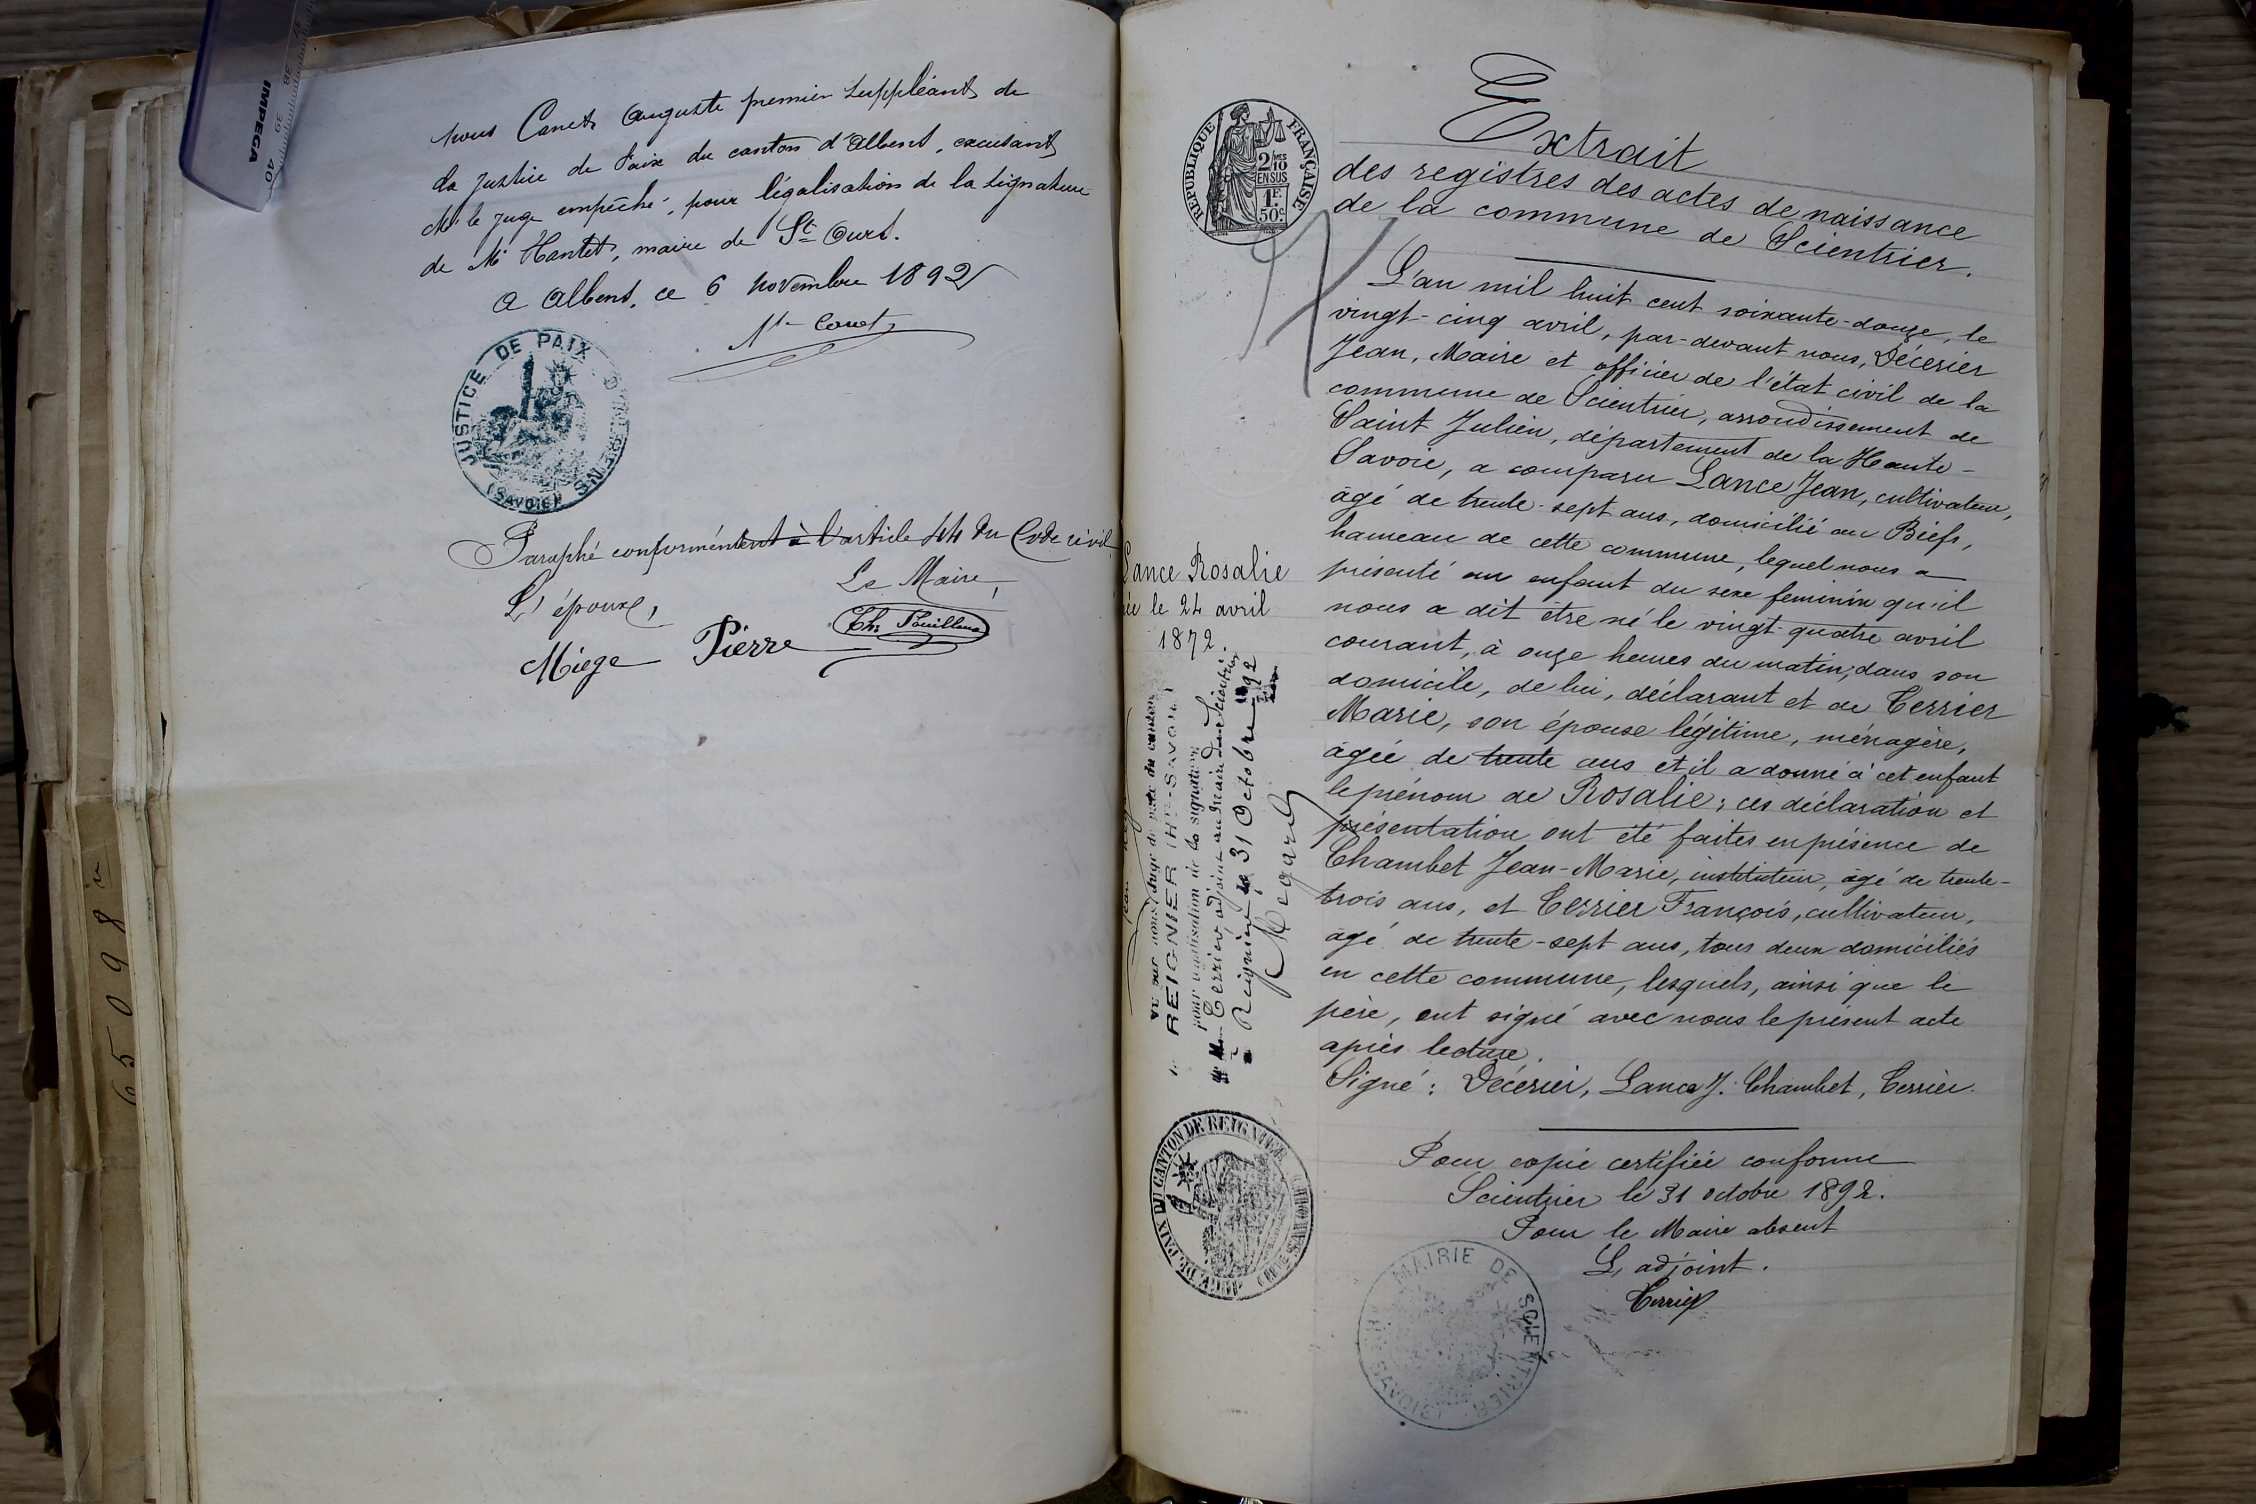 IMPEGA
38 39 40
Nous Canet Auguste premier suppléant de
la Justice de Paix du canton d'Albens, excusant
Mr le Juge empêché, pour légalisation de la signature
de Mr Hantet, maire de St Ours.
A Albens, ce 6 novembre 1892
Canet
JUSTICE DE PAIX
(SAVOIE)
Paraphé conformément à l'article 44 du Code civil
Le Maire,
L'époux,
Miege Pierre
650981
RÉPUBLIQUE FRANÇAISE
2/10MES
EN SUS
1F.
50c.
Extrait
des registres des actes de naissance
de la commune de Scientrier.
L'an mil huit cent soixante-douze, le
vingt-cinq avril, par-devant nous, Décerier
Jean, Maire et officier de l'état civil de la
commune de Scientrier, arrondissement de
Saint Julien, département de la Haute-
Savoie, a comparu Lance Jean, cultivateur,
âgé de trente-sept ans, domicilié au Biefs,
hameau de cette commune, lequel nous a
présenté un enfant du sexe feminin qu'il
nous a dit etre né le vingt-quatre avril
courant, à onze heures du matin, dans son
domicile, de lui, déclarant et de Terrier
Marie, son épouse légitime, ménagère,
âgée de trente ans et il a donné à cet enfant
le prénom de Rosalie; ces déclaration et
présentation ont été faites en présence de
Chambet Jean-Marie, instituteur, âgé de trente-
trois ans, et Terrier François, cultivateur,
âgé de trente-sept ans, tous deux domiciliés
en cette commune, lesquels, ainsi que le
père, ont signé avec nous le présent acte
après lecture.
Signé: Décerier, Lance J. Chambet, Terrier.
Pour copie certifiée conforme
Scientrier le 31 octobre 1892.
Pour le Maire absent
L'adjoint.
Terrier
MAIRIE DE SCIENTRIER
Lance Rosalie
née le 24 avril
1872.
Vu par nous Juge de paix du canton
REIGNIER (HTE-SAVOIE)
pour légalisation de la signature
de M. Terrier, adjoint au maire de Scientrier
à Reignier le 31 Octobre 1892
Megard
JUGE DE PAIX DU CANTON DE REIGNIER